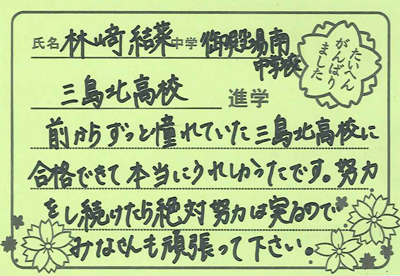 氏名 林﨑 結菜 中学 御殿場南
中学校
たいへん
がんばり
ました
三島北高校 進学
前からずっと憧れていた三島北高校に
合格できて本当にうれしかったです。努力
をし続けたら絶対努力は実るので
みなさんも頑張って下さい。